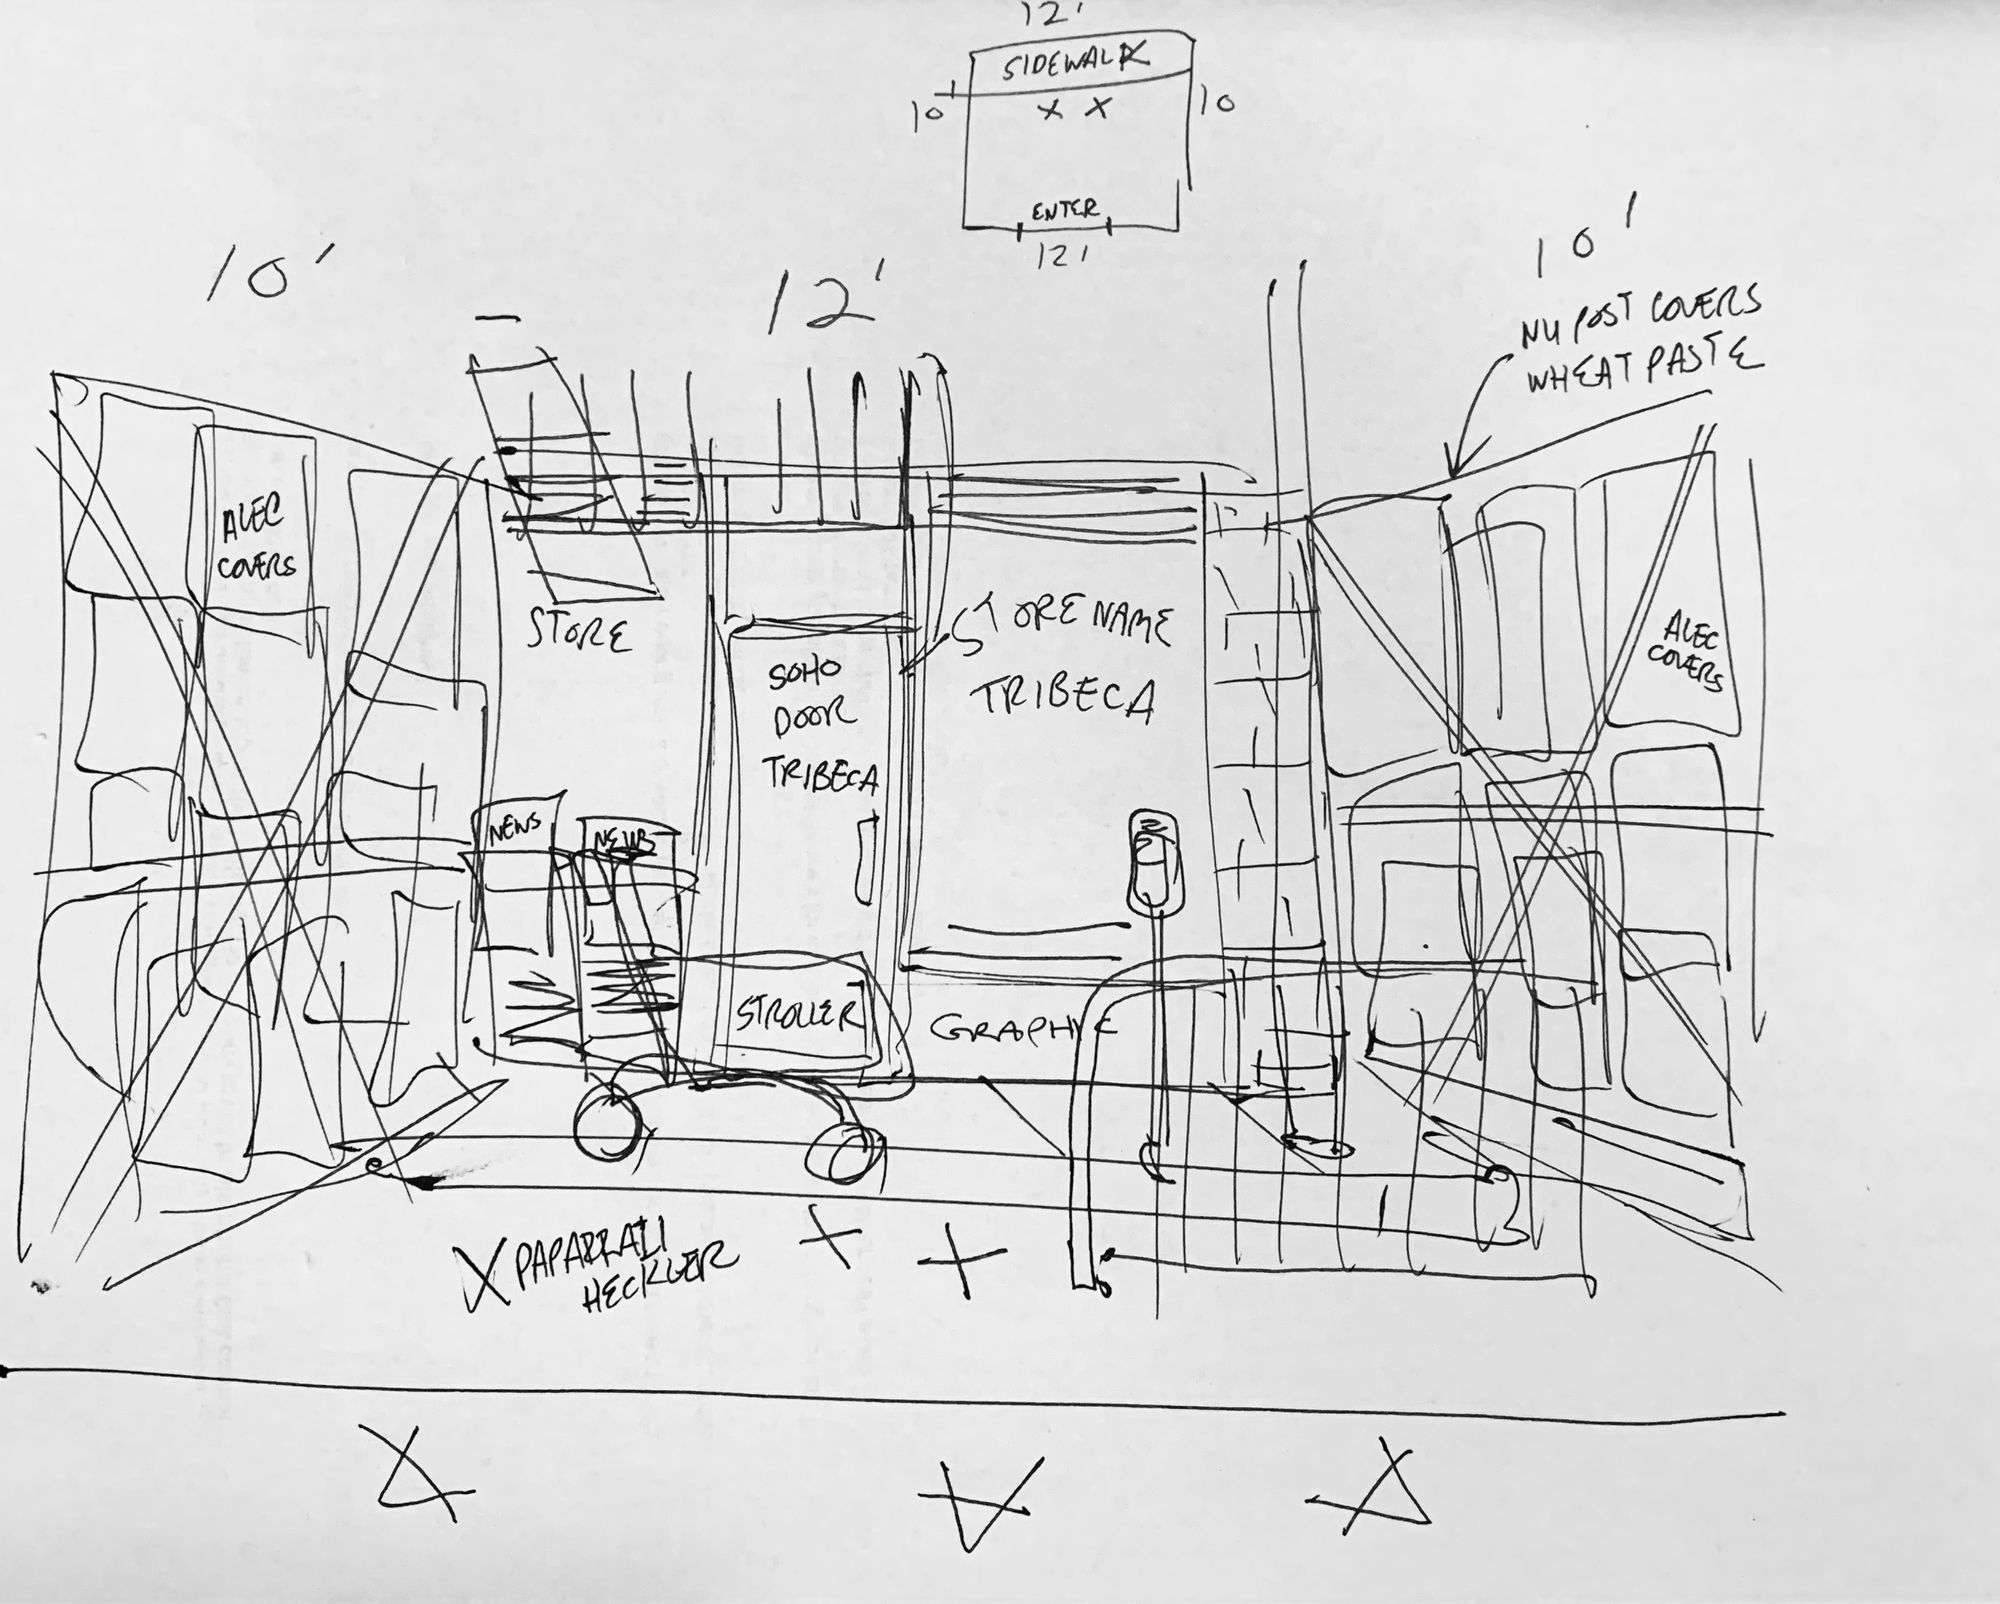 12'
SIDEWALK
10'
10
X X
ENTER
12'
10'
12'
10'
NY POST COVERS
WHEAT PASTE
ALEC
COVERS
STORE
SOHO
DOOR
TRIBECA
STORE NAME
TRIBECA
ALEC
COVERS
NEWS
NEWS
STROLLER
GRAPHIC
X PAPARRAZI
HECKLER